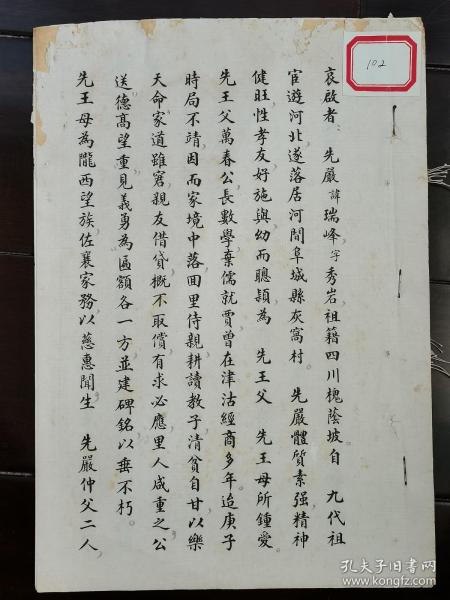 哀啟者 先嚴諱瑞峰字秀岩祖籍四川槐蔭坡自 九代祖
官遊河北遂落居河間阜城縣灰窩村 先嚴體質素强精神
健旺性孝友好施與幼而聰穎為 先王父 先王母所鍾愛
先王父萬春公長數學棄儒就賈曾在津沽經商多年迨庚子
時局不靖因而家境中落回里侍親耕讀教子清貧自甘以樂
天命家道雖窘親友借貸概不取償有求必應里人咸重之公
送德高望重見義勇為匾額各一方並建碑銘以垂不朽
先王母為隴西望族佐襄家務以慈惠聞生 先嚴仲父二人
102
孔夫子旧书网
www.kongfz.com